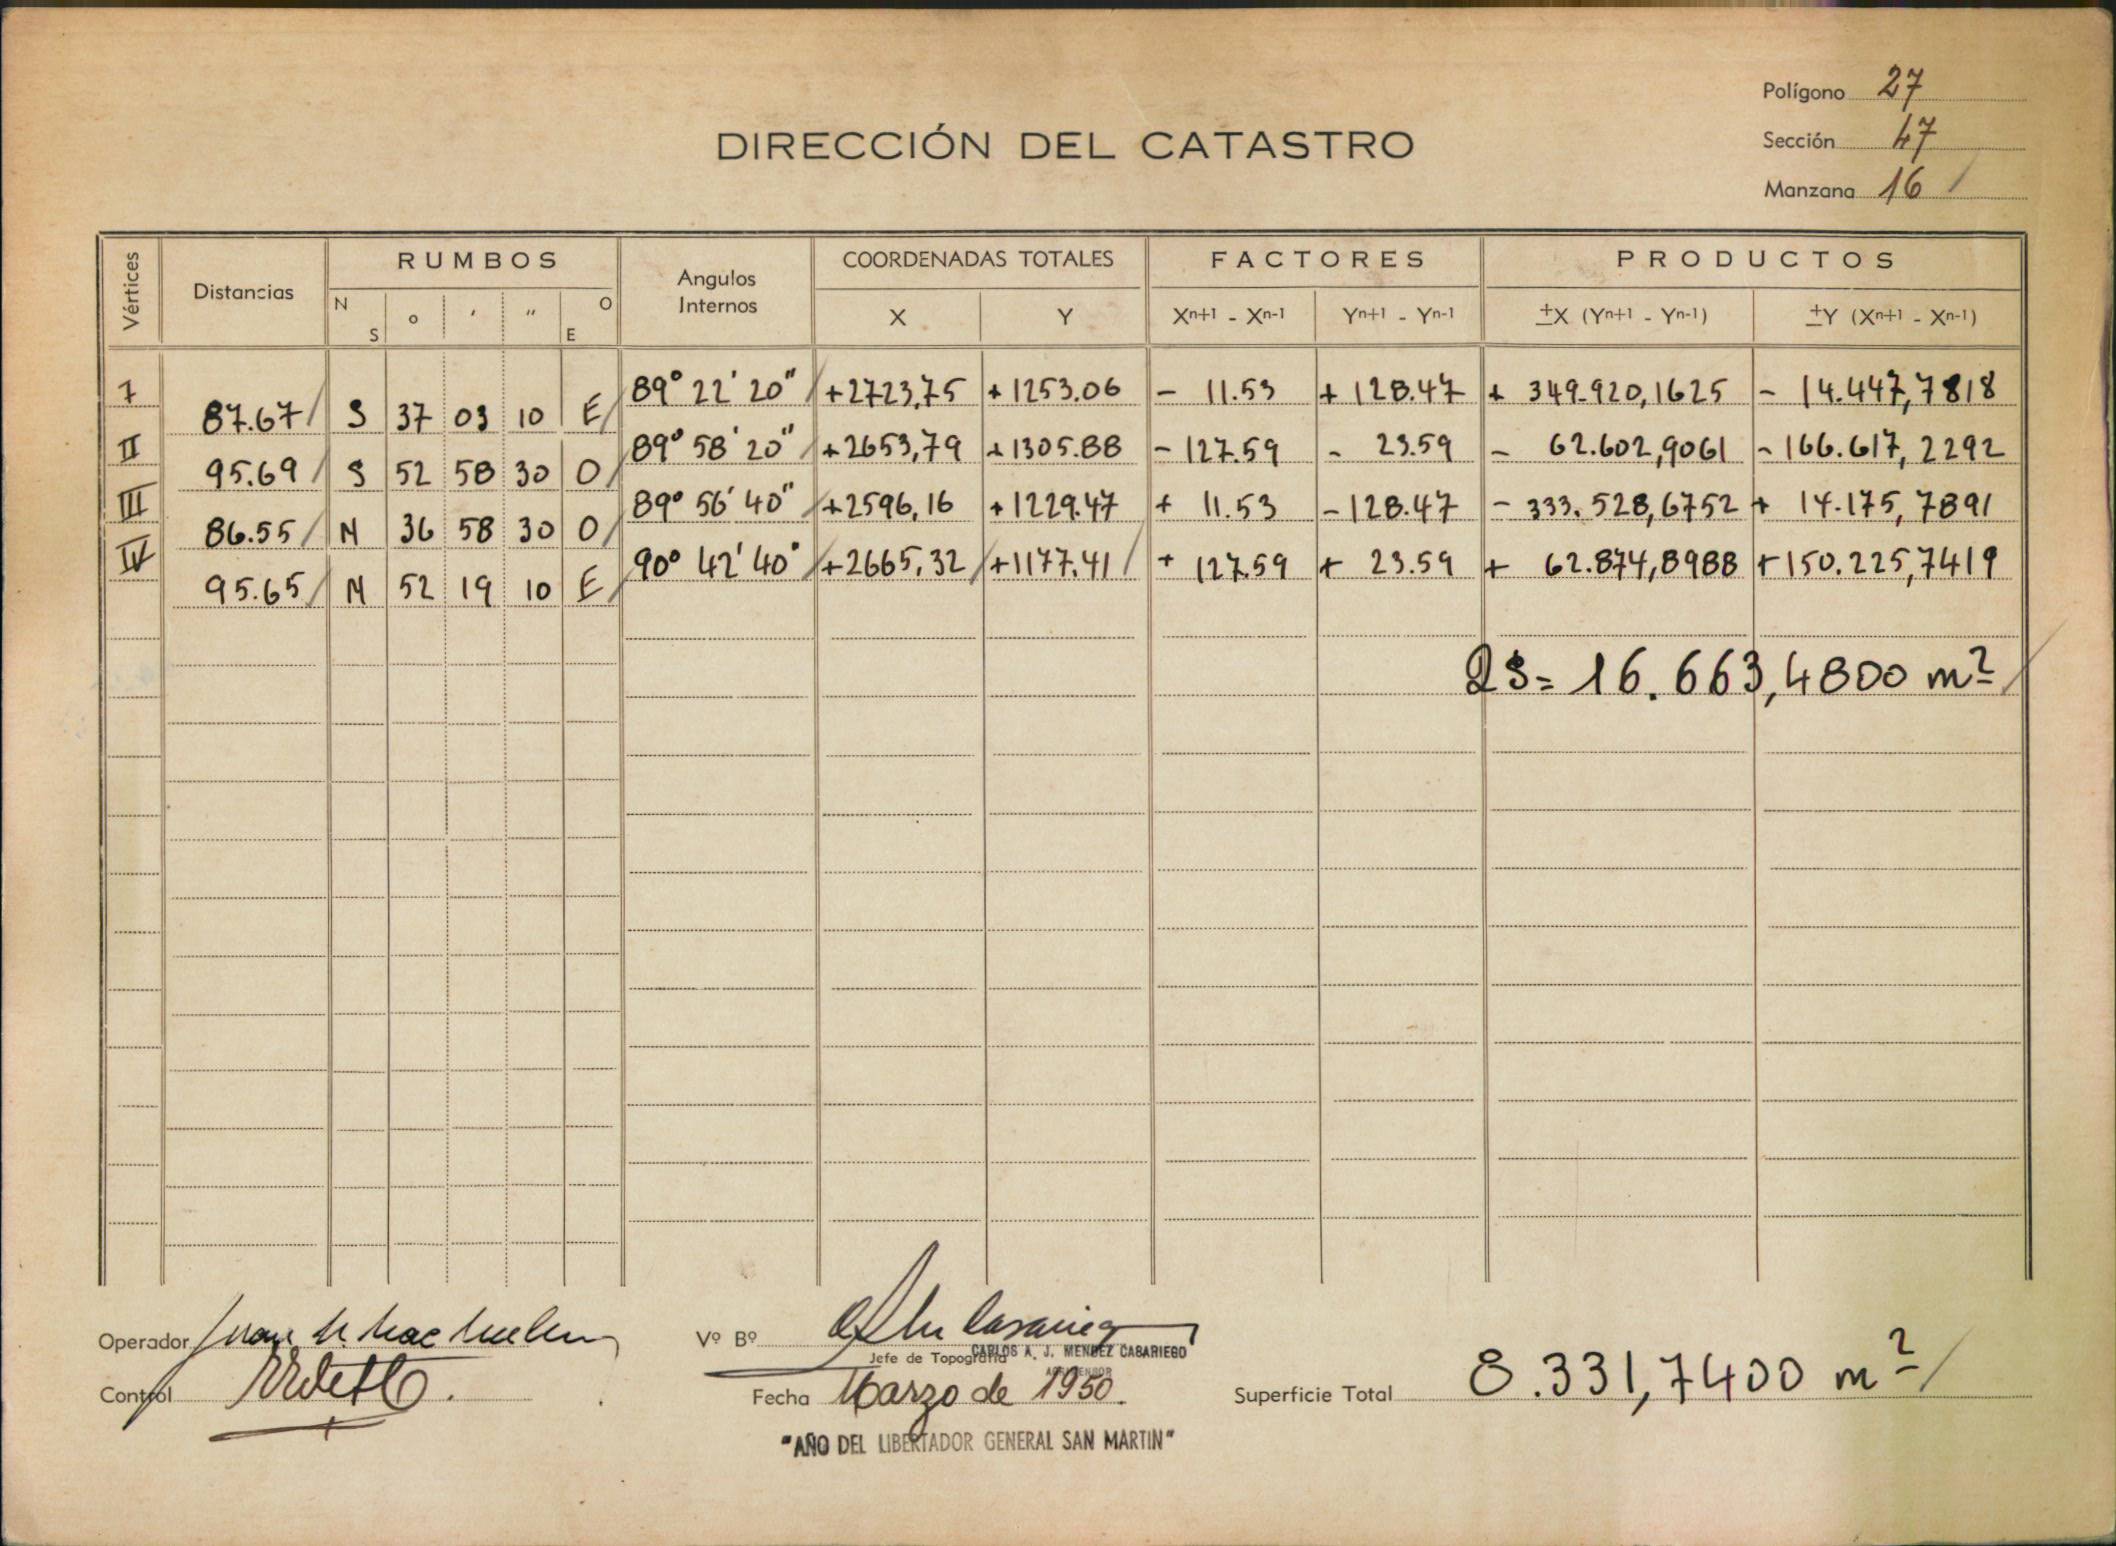 Polígono 27
DIRECCIÓN DEL CATASTRO
Sección 47
Manzana 16 /
Vértices Distancias RUMBOS Angulos Internos COORDENADAS TOTALES FACTORES PRODUCTOS
N S o ' " O E X Y Xn+1 - Xn-1 Yn+1 - Yn-1 ±X (Yn+1 - Yn-1) ±Y (Xn+1 - Xn-1)
I 89° 22' 20" / +2723,75 +1253.06 - 11.53 +128.47 + 349.920,1625 - 14.447,7818
87.67 / S 37 03 10 E /
II 89° 58' 20" / +2653,79 +1305.88 -127.59 - 23.59 - 62.602,9061 -166.617,2292
95.69 / S 52 58 30 O /
III 89° 56' 40" / +2596,16 +1229.47 + 11.53 -128.47 - 333.528,6752 + 14.175,7891
86.55 / N 36 58 30 O /
IV 90° 42' 40" / +2665,32 / +1177.41 / + 127.59 + 23.59 + 62.874,8988 +150.225,7419
95.65 / N 52 19 10 E /
2S= 16.663,4800 m² /
Operador Juan
Vº Bº
Jefe de Topografía CARLOS A. J. MENDEZ CASARIEGO
AGRIMENSOR
Control
Fecha Marzo de 1950.
Superficie Total 8.331,7400 m² /
"AÑO DEL LIBERTADOR GENERAL SAN MARTIN"